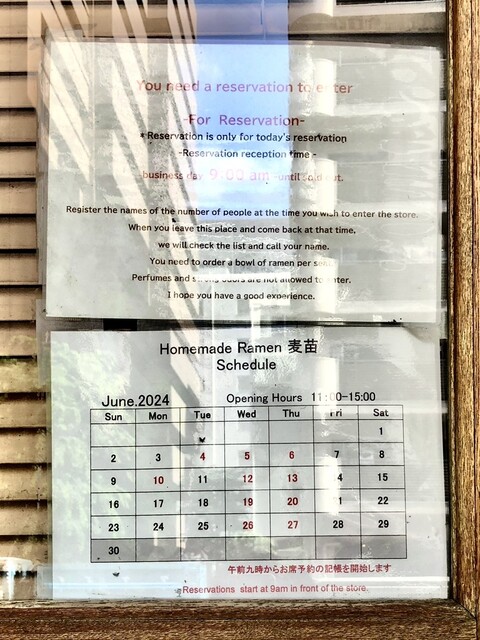 You need a reservation to enter
-For Reservation-
*Reservation is only for today's reservation
-Reservation reception time -
business day 9:00 am -until sold out.
Register the names of the number of people at the time you wish to enter the store.
When you leave this place and come back at that time,
we will check the list and call your name.
You need to order a bowl of ramen per
Perfumes and strong odors are not allowed to enter.
I hope you have a good experience.
Homemade Ramen 麦苗
Schedule
June.2024 Opening Hours 11:00-15:00
Sun Mon Tue Wed Thu Fri Sat
1
2 3 4 5 6 7 8
9 10 11 12 13 4 15
16 17 18 19 20 1 22
23 24 25 26 27 28 29
30
午前九時からお席予約の記帳を開始します
Reservations start at 9am in front of the store.